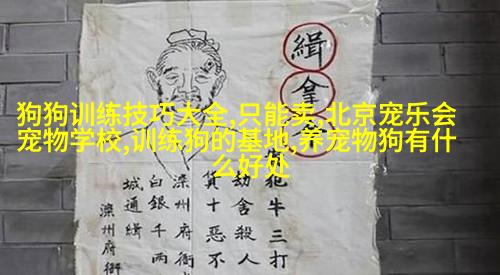 狗狗训练技巧大全,只能卖,北京宠乐会
宠物学校,训练狗的基地,养宠物狗有什
么好处
緝
拿
犯牛三打
劫舍殺人
貨十惡不
滦州府衙
白銀千两
城通緝
滦州府衙